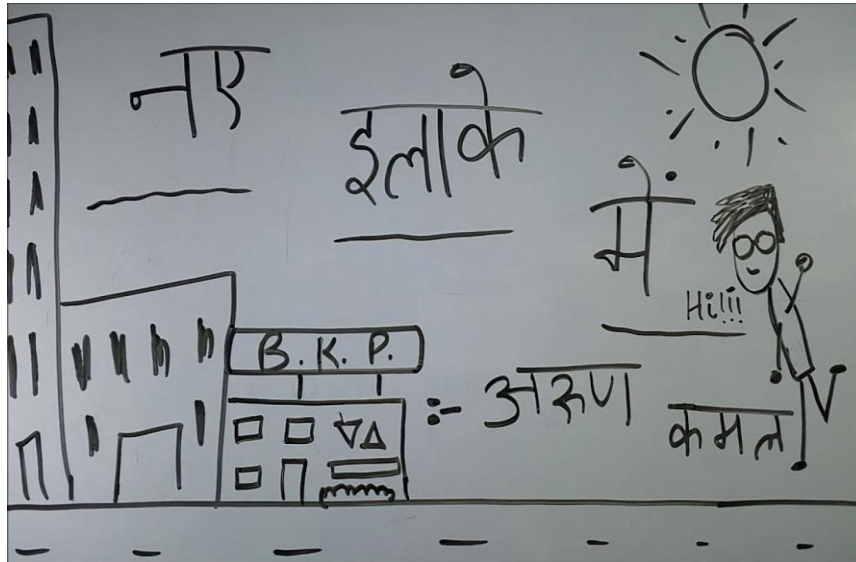 नए इलाके में
Hi!!!
B. K. P.
:- अरुण कमल